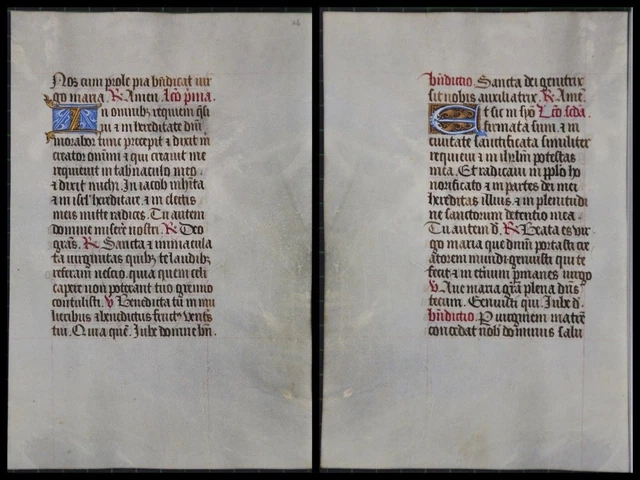 Nos cum prole pia bñdicat vir
go maria. R Amen. Lc̃o pĩa.
In omnibz requiem q̃si
ui et in hereditate dñi
morabor tunc precepit et dixit m̃
creator oniũm et qui creauit me
requieuit in tabnãculo meo.
et dixit michi. In iacob inhĩta
et in isrl̃ hereditare et in electis
meis mitte radices. Tu autem
domine miserẽ nostri. R Deo
grãs. R Sancta et inmacula
ta uirginitas quibz te laudibz
referam nescio. quia quem celi
capere non poterant tuo gremio
contulisti. V Benedicta tu in mu
lieribus et benedictus fructꝰ ventꝭ
tui. Quia quẽ. Iube domne bñ.
bñdictio. Sancta dei genitrix
sit nobis auxiliatrix. R Amẽ.
Et sic in syõ Lc̃o scd̃a.
firmata sum. et in
ciuitate sanctificata similiter
requieui et in ihrlm̃ potestas
mea. Et radicaui in pplõ ho
norificato et in partes dei mei
hereditas illius. et in plenitudi
ne sanctorum detentio mea.
Tu autem d. R Beata es vir
go maria que dñum portasti cre
atorem mundi genuisti qui te
fecit et in eternũ pmanes uirgo
V Aue maria grã plena dñs
tecum. Genuisti qui. Iube d.
bñdictio. Per virginem matrẽ
concedat nob̃ dominus salu